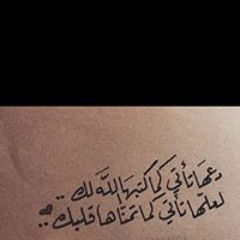 دعها تأتي كما كتبها اللّه لك ..
لعلّها تأتي كما تمنّاها قلبك ..